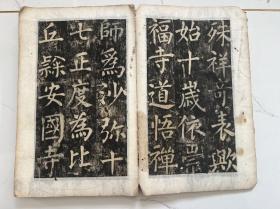 殊祥奇表歟
始十歲依崇
福寺道悟禪
師爲沙弥十
七正度為比
丘隸安國寺